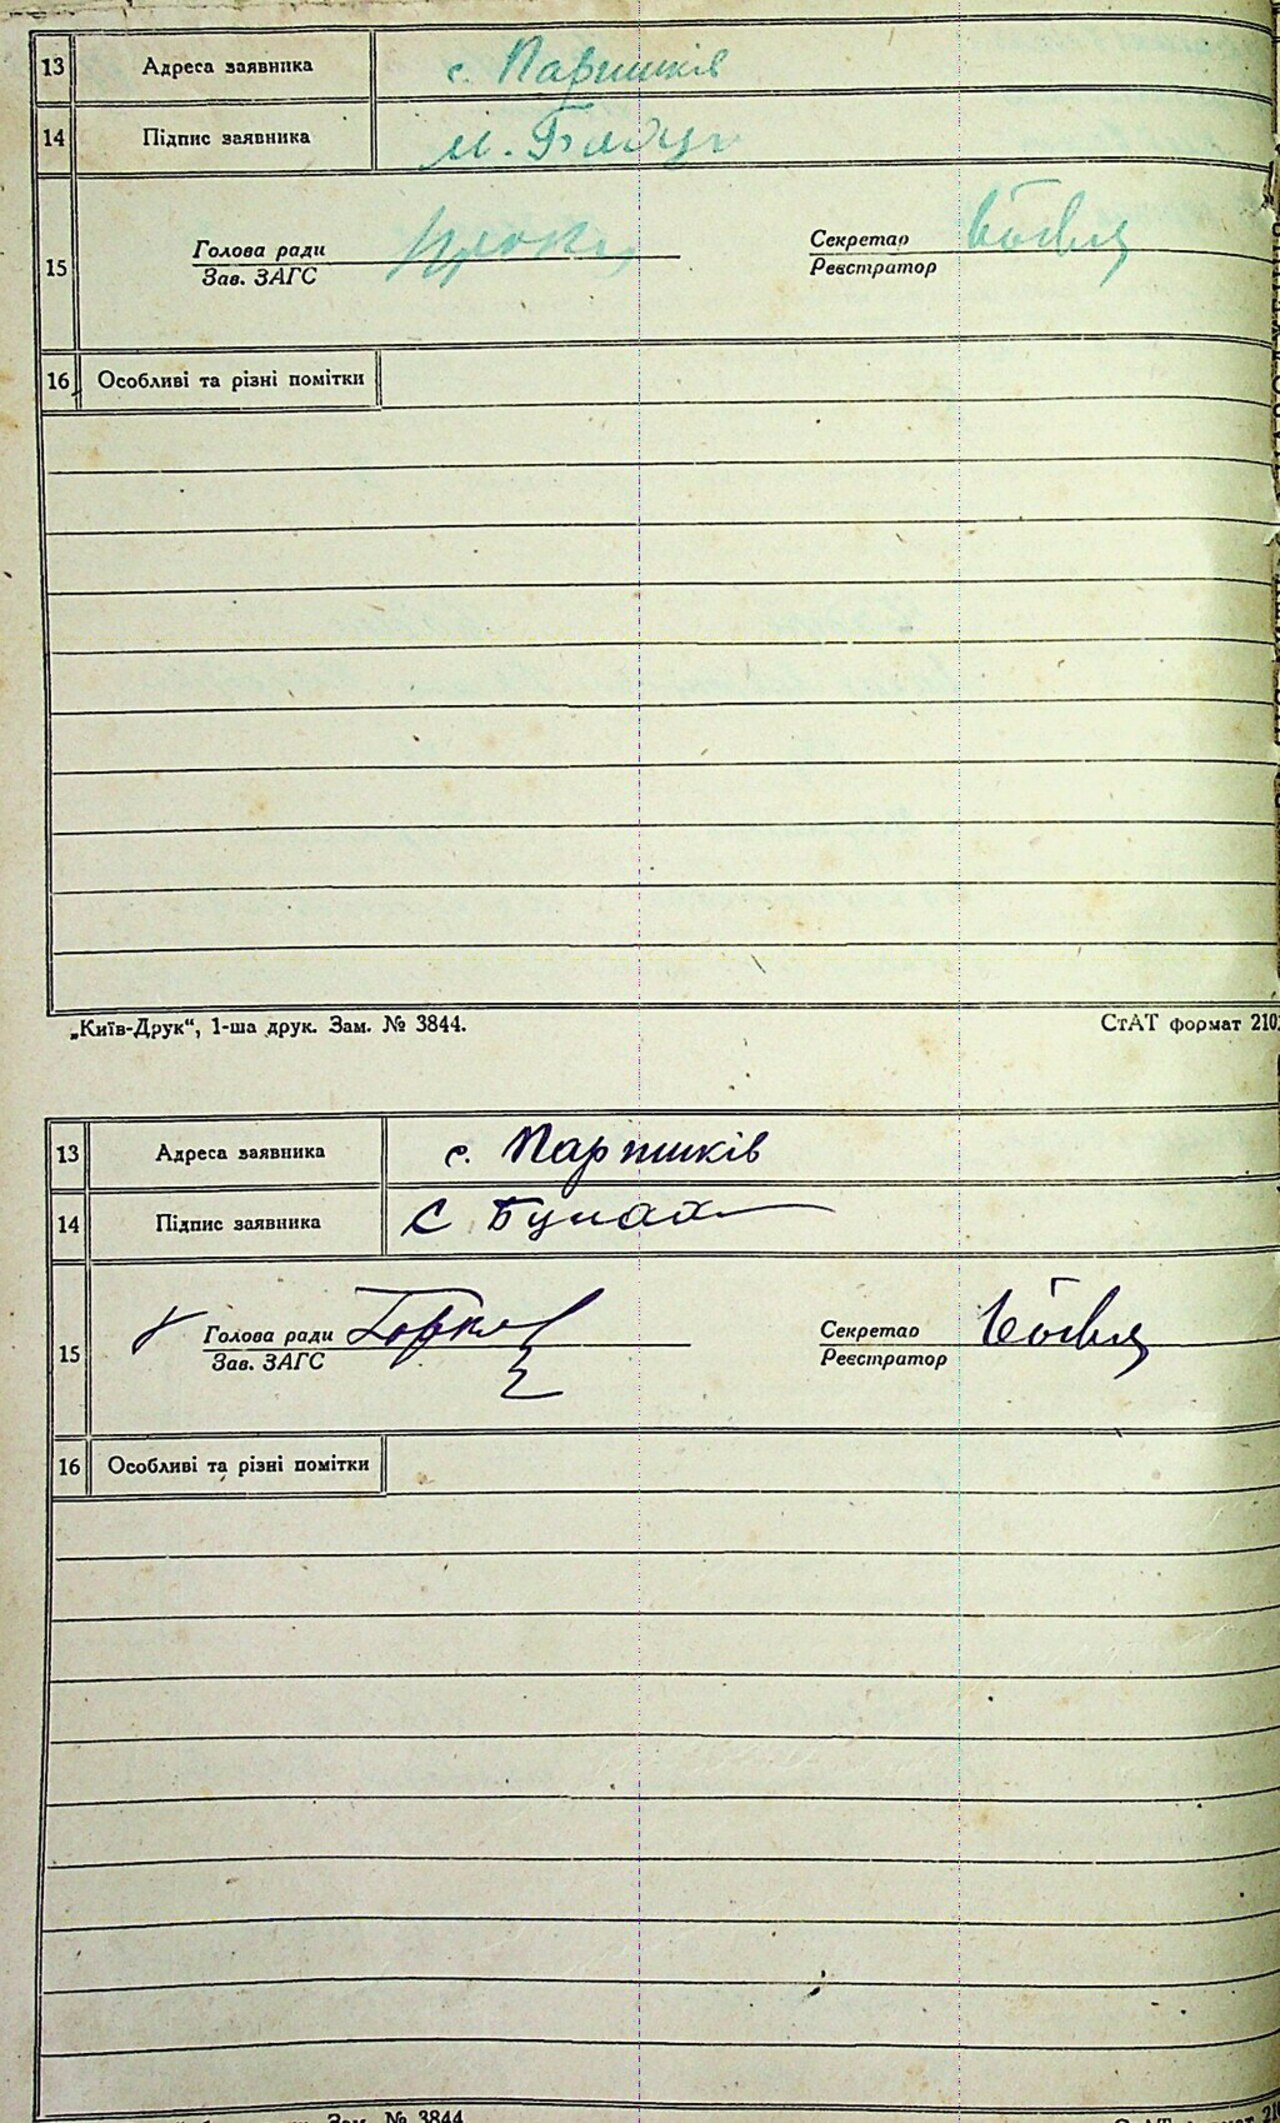 13 Адреса заявника с. Паришків
14 Підпис заявника М.
Голова ради Секретар
15
Зав. ЗАГС Реєстратор
16 Особливі та різні помітки
„Київ-Друк“, 1-ша друк. Зам. № 3844. СтАТ формат 210
13 Адреса заявника с. Паришків
14 Підпис заявника С
Голова ради Секретар
15
Зав. ЗАГС Реєстратор
16 Особливі та різні помітки
Зам. № 3844